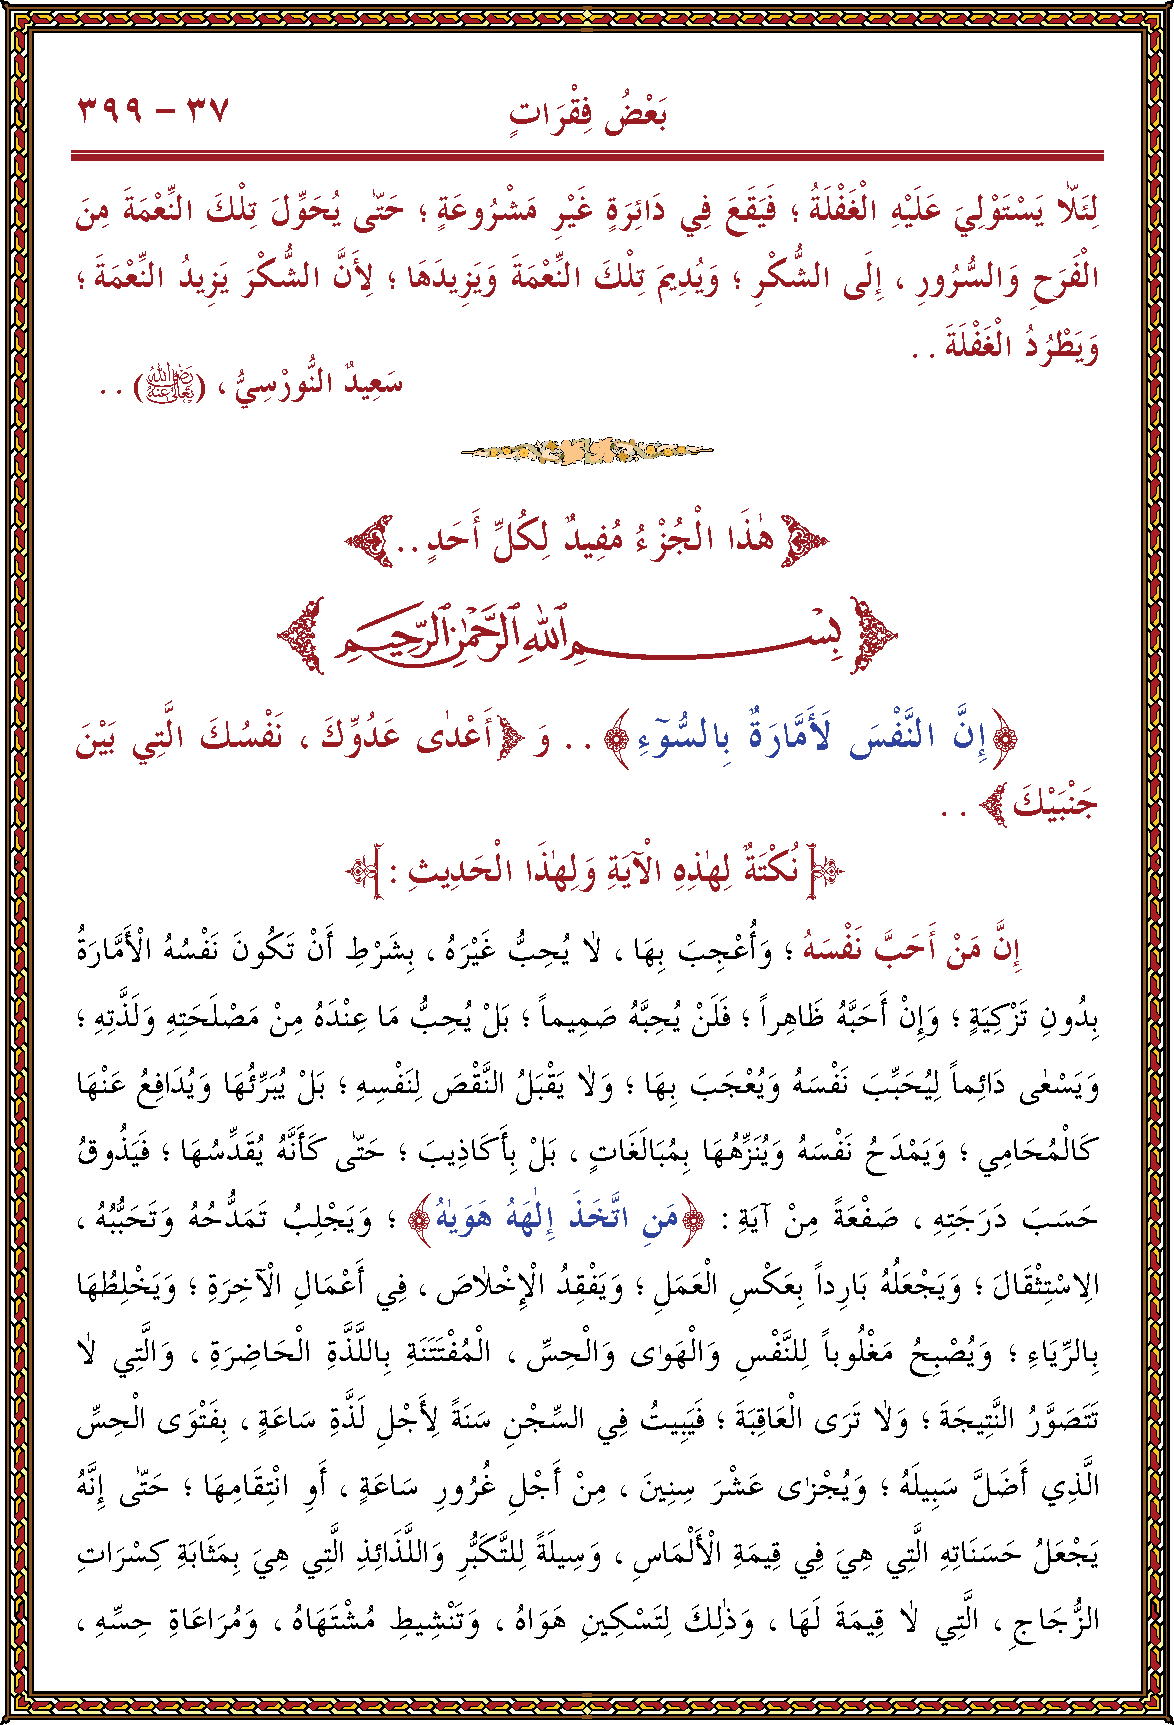 بَعْضُ فِقْرَاتٍ ٣٧ – ٣٩٩
لِئَلَّا يَسْتَوْلِيَ عَلَيْهِ الْغَفْلَةُ ؛ فَيَقَعَ فِي دَائِرَةٍ غَيْرِ مَشْرُوعَةٍ ؛ حَتّٰى يُحَوِّلَ تِلْكَ النِّعْمَةَ مِنَ
الْفَرَحِ وَالسُّرُورِ ، إِلَى الشُّكْرِ ؛ وَيُدِيمَ تِلْكَ النِّعْمَةَ وَيَزِيدَهَا ؛ لِأَنَّ الشُّكْرَ يَزِيدُ النِّعْمَةَ ؛
وَيَطْرُدُ الْغَفْلَةَ . .
سَعِيدٌ النُّورْسِيُّ ، (رضي الله تعالى عنه) . .
هٰذَا الْجُزْءُ مُفِيدٌ لِكُلِّ أَحَدٍ . .
بِسْمِ اللّٰهِ الرَّحْمٰنِ الرَّحِيمِ
﴿إِنَّ النَّفْسَ لَأَمَّارَةٌ بِالسُّوٓءِ﴾ . . وَ ﴿أَعْدٰى عَدُوِّكَ ، نَفْسُكَ الَّتِي بَيْنَ
جَنْبَيْكَ﴾ . .
نُكْتَةٌ لِهٰذِهِ الْآيَةِ وَلِهٰذَا الْحَدِيثِ :
إِنَّ مَنْ أَحَبَّ نَفْسَهُ ؛ وَأُعْجِبَ بِهَا ، لٰا يُحِبُّ غَيْرَهُ ، بِشَرْطِ أَنْ تَكُونَ نَفْسُهُ الْأَمَّارَةُ
بِدُونِ تَزْكِيَةٍ ؛ وَإِنْ أَحَبَّهُ ظَاهِراً ؛ فَلَنْ يُحِبَّهُ صَمِيماً ؛ بَلْ يُحِبُّ مَا عِنْدَهُ مِنْ مَصْلَحَتِهِ وَلَذَّتِهِ ؛
وَيَسْعٰى دَائِماً لِيُحَبِّبَ نَفْسَهُ وَيُعْجَبَ بِهَا ؛ وَلٰا يَقْبَلُ النَّقْصَ لِنَفْسِهِ ؛ بَلْ يُبَرِّئُهَا وَيُدَافِعُ عَنْهَا
كَالْمُحَامِي ؛ وَيَمْدَحُ نَفْسَهُ وَيُنَزِّهُهَا بِمُبَالَغَاتٍ ، بَلْ بِأَكَاذِيبَ ؛ حَتّٰى كَأَنَّهُ يُقَدِّسُهَا ؛ فَيَذُوقُ
حَسَبَ دَرَجَتِهِ ، صَفْعَةً مِنْ آيَةِ : ﴿مَنِ اتَّخَذَ إِلٰهَهُ هَوٰيهُ﴾ ؛ وَيَجْلِبُ تَمَدُّحُهُ وَتَحَبُّبُهُ ،
الِاسْتِثْقَالَ ؛ وَيَجْعَلُهُ بَارِداً بِعَكْسِ الْعَمَلِ ؛ وَيَفْقِدُ الْإِخْلٰاصَ ، فِي أَعْمَالِ الْآخِرَةِ ؛ وَيَخْلِطُهَا
بِالرِّيَاءِ ؛ وَيُصْبِحُ مَغْلُوباً لِلنَّفْسِ وَالْهَوٰى وَالْحِسِّ ، الْمُفْتَتَنَةِ بِاللَّذَّةِ الْحَاضِرَةِ ، وَالَّتِي لٰا
تَتَصَوَّرُ النَّتِيجَةَ ؛ وَلٰا تَرَى الْعَاقِبَةَ ؛ فَيَبِيتُ فِي السِّجْنِ سَنَةً لِأَجْلِ لَذَّةِ سَاعَةٍ ، بِفَتْوَى الْحِسِّ
الَّذِي أَضَلَّ سَبِيلَهُ ؛ وَيُجْزٰى عَشْرَ سِنِينَ ، مِنْ أَجْلِ غُرُورِ سَاعَةٍ ، أَوِ انْتِقَامِهَا ؛ حَتّٰى إِنَّهُ
يَجْعَلُ حَسَنَاتِهِ الَّتِي هِيَ فِي قِيمَةِ الْأَلْمَاسِ ، وَسِيلَةً لِلتَّكَبُّرِ وَاللَّذَائِذِ الَّتِي هِيَ بِمَثَابَةِ كِسْرَاتِ
الزُّجَاجِ ، الَّتِي لٰا قِيمَةَ لَهَا ، وَذٰلِكَ لِتَسْكِينِ هَوَاهُ ، وَتَنْشِيطِ مُشْتَهَاهُ ، وَمُرَاعَاةِ حِسِّهِ ،